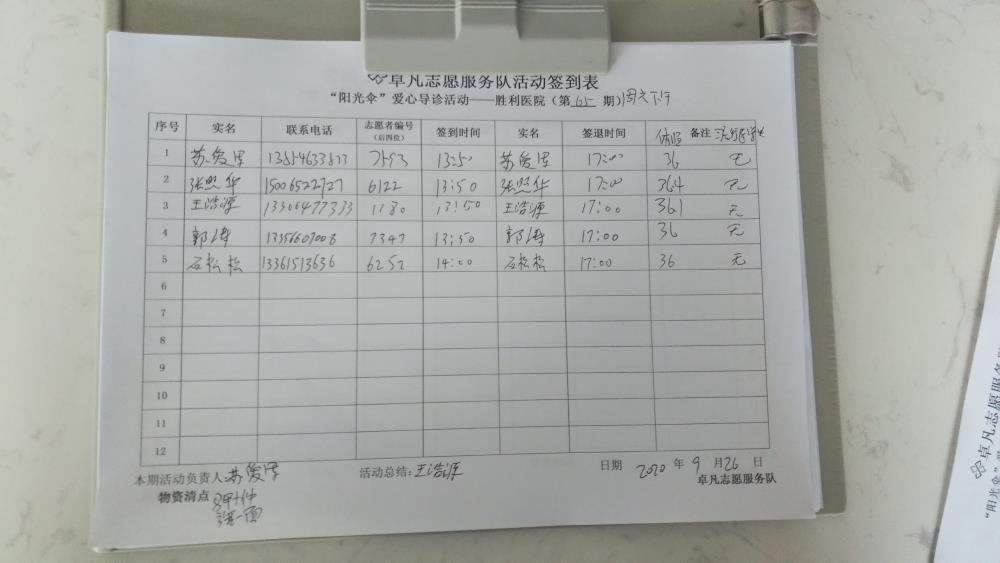 卓凡志愿服务队活动签到表
“阳光伞”爱心导诊活动——胜利医院（第 65 期）周六下午
序号 实名 联系电话 志愿者编号（后四位） 签到时间 实名 签退时间 体温 备注 流行病学史
1 苏爱国 13:50 苏爱国 17:00 36 无
2 张照华 15006522727 6122 13:50 张照华 17:00 364 无
3 王浩源 13306477333 1180 13:50 王浩源 17:00 361 无
4 郭涛 7347 13:50 郭涛 17:00 36 无
5 石松松 13361513636 6252 14:00 石松松 17:00 36 无
6
7
8
9
10
11
12
本期活动负责人: 活动总结: 王浩源 日期 2020 年 9 月 26 日
物资清点 卓凡志愿服务队
卓凡志愿服务队
“阳光伞”爱